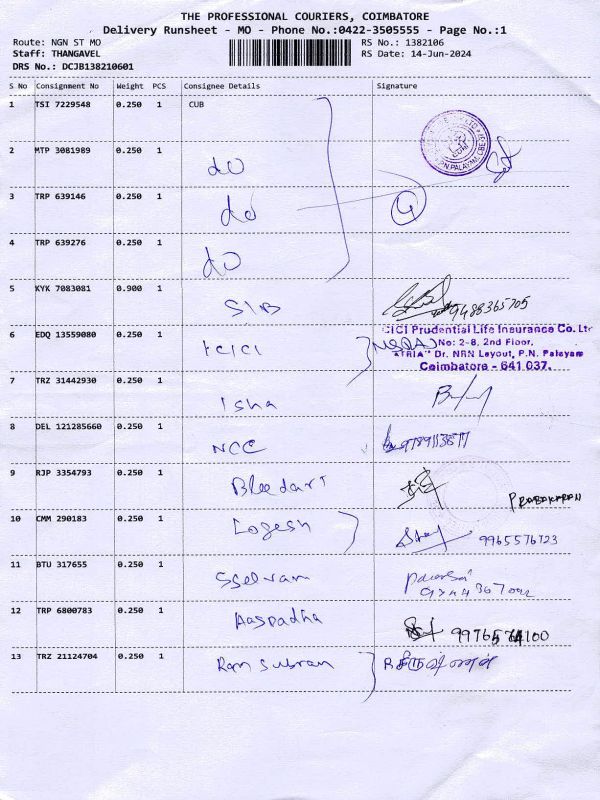 THE PROFESSIONAL COURIERS, COIMBATORE
Delivery Runsheet - MO - Phone No.:0422-3505555 - Page No.:1
Route: NGN ST MO RS No.: 1382106
Staff: THANGAVEL RS Date: 14-Jun-2024
DRS No.: DCJB138210601
S No Consignment No Weight PCS Consignee Details Signature
1 TSI 7229548 0.250 1 CUB
2 MTP 3081989 0.250 1 do
3 TRP 639146 0.250 1 do 4
4 TRP 639276 0.250 1 do
5 KYK 7083081 0.900 1 SIB 9488365705
6 EDQ 13559080 0.250 1 ICICI
ICICI Prudential Life Insurance Co. Ltd
No: 2-8, 2nd Floor,
"ATRIA" Dr. NRN Layout, P.N. Palayam
Coimbatore - 641 037.
7 TRZ 31442930 0.250 1 Isha
8 DEL 121285660 0.250 1 NCC
9 RJP 3354793 0.250 1 Bleedart PRABAKARAN
10 CMM 290183 0.250 1 Logesh 9965576723
11 BTU 317655 0.250 1 Sselvam
12 TRP 6800783 0.250 1 Aaspadha
13 TRZ 21124704 0.250 1 Ram Subran